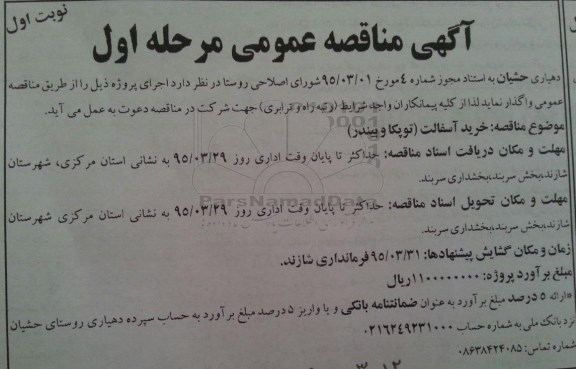 نوبت اول
آگهی مناقصه عمومی مرحله اول
دهیاری حشیان به استناد مجوز شماره ۴ مورخ ۹۵/۰۳/۰۱ شورای اصلاحی روستا در نظر دارد اجرای پروژه ذیل را از طریق مناقصه
عمومی واگذار نماید لذا از کلیه پیمانکاران واجد شرایط (رتبه راه و ترابری) جهت شرکت در مناقصه دعوت به عمل می آید.
موضوع مناقصه: خرید آسفالت (توپکا و بیندر)
مهلت و مکان دریافت اسناد مناقصه: حداکثر تا پایان وقت اداری روز ۹۵/۰۳/۲۹ به نشانی استان مرکزی، شهرستان
شازند،بخش سربند،بخشداری سربند.
ParsNamadData
مهلت و مکان تحویل اسناد مناقصه: حداکثر تا پایان وقت اداری روز ۹۵/۰۳/۲۹ به نشانی استان مرکزی شهرستان
شازند،بخش سربند،بخشداری سربند.
زمان و مکان گشایش پیشنهادها: ۹۵/۰۳/۳۱ فرمانداری شازند.
مبلغ برآورد پروژه: ۱۱۰۰۰۰۰۰۰۰ ریال
*ارائه ۵ درصد مبلغ برآورد به عنوان ضمانتنامه بانکی و یا واریز ۵ درصد مبلغ برآورد به حساب سپرده دهیاری روستای حشیان
نزد بانک ملی به شماره حساب ۰۲۱۶۲۴۹۲۳۱۰۰۰
شماره تماس: ۰۸۶۳۸۴۲۴۰۸۵